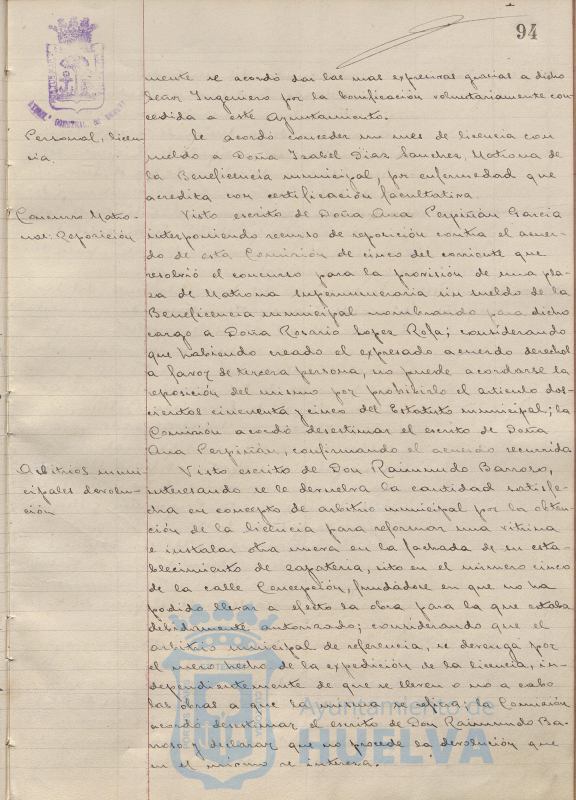 94
mente se acordó dar las mas expresivas gracias a dicho
Señor Ingeniero por la bonificación voluntariamente con-
cedida a este Ayuntamiento.
Personal, licen-
cia.
Se acordó conceder un mes de licencia con
sueldo a Doña Isabel Diaz Sanchez, Matrona de
la Beneficencia municipal, por enfermedad que
acredita con certificación facultativa.
Concurso Matro-
nas: Reposición
Visto escrito de Doña Ana Perpiñán Garcia
interponiendo recurso de reposición contra el acuer-
do de esta Comisión de cinco del corriente que
resolvió el concurso para la provisión de una pla-
za de Matrona supernumeraria sin sueldo de la
Beneficencia municipal nombrando para dicho
cargo a Doña Rosario Lopez Rofa; considerando
que habiendo creado el expresado acuerdo derechos
a favor de tercera persona, no puede acordarse la
reposición del mismo por prohibirlo el articulo dos-
cientos cincuenta y cinco del Estatuto municipal; la
Comisión acordó desestimar el escrito de Doña
Ana Perpiñán, confirmando el acuerdo recurrido
Arbitrios muni-
cipales devolu-
ción
Visto escrito de Don Raimundo Barroso,
interesando se le devuelva la cantidad satisfe-
cha en concepto de arbitrio municipal por la obten-
ción de la licencia para reformar una vitrina
e instalar otra nueva en la fachada de su esta-
blecimiento de zapateria, sito en el número cinco
de la calle Concepción, fundádose en que no ha
podido llevar a efecto la obra para la que estaba
debidamente autorizado; considerando que el
arbitrio municipal de referencia, se devenga por
el mero hecho de la expedición de la licencia, in-
dependientemente de que se lleven o no a cabo
las obras a que la misma se refiera; la Comisión
acordó desestimar el escrito de Don Raimundo Ba-
rroso y declarar que no procede la devolución que
en el mismo se interesa.
Ayuntamiento de
HUELVA